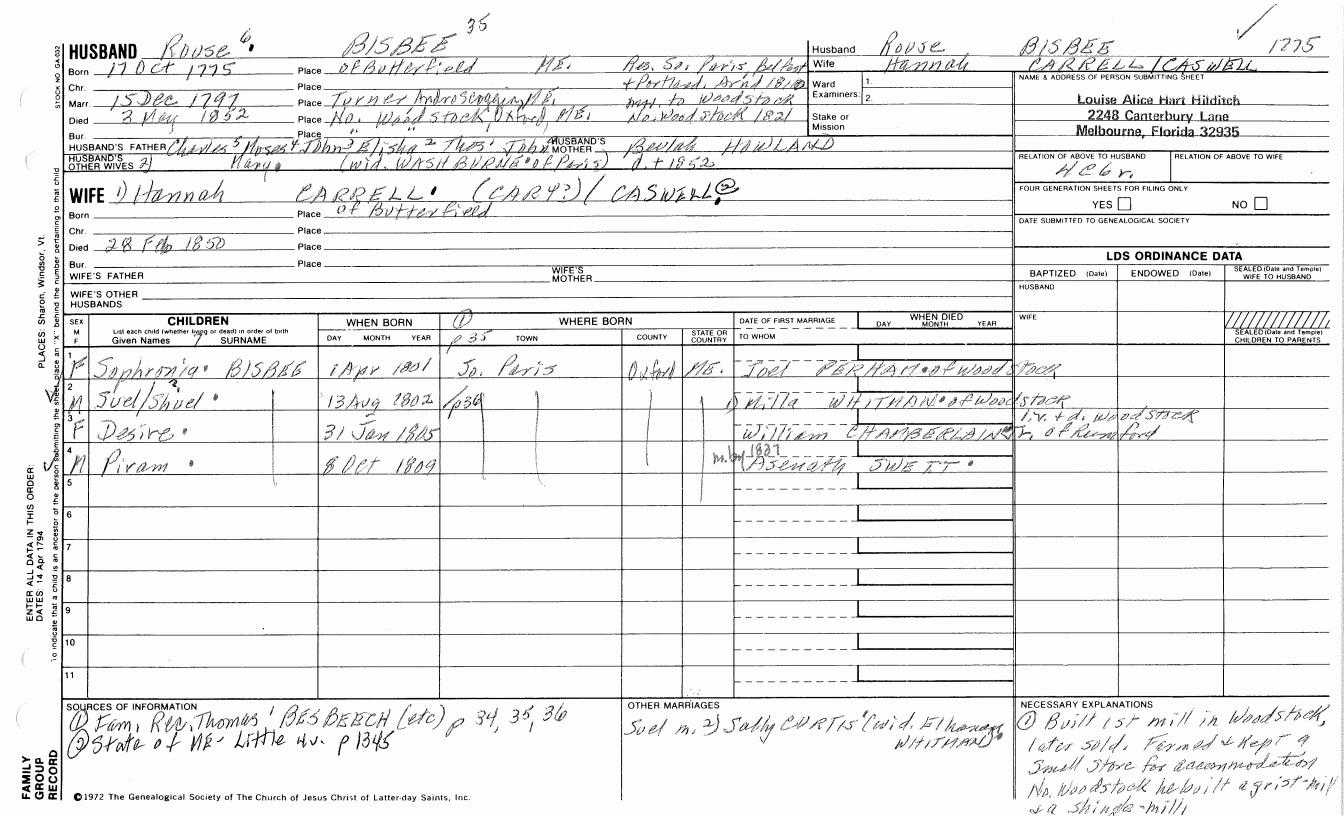 35
HUSBAND Rouse 6. BISBEE
Husband Rouse BISBEE 1775
Born 17 Oct 1775 Place of Butterfield ME. Res. So. Paris Belfast
Wife Hannah CARRELL/CASWELL
Chr. Place + Portland, Arnd 1810
Ward Examiners: 1. 2.
Marr. 15 Dec 1797 Place Turner Androscoggin, ME. to Woodstock
Died 3 May 1852 Place No. Woodstock, Oxford, ME. No. Woodstock 1821
Stake or Mission
Bur. Place " "
HUSBAND'S FATHER Charles 5 Moses 4 John 3 Elisha 2 Thos' John HUSBAND'S MOTHER Beulah HOWLAND
HUSBAND'S OTHER WIVES 2) Mary (wid. WASHBURNE of Paris) d. + 1852
NAME & ADDRESS OF PERSON SUBMITTING SHEET
Louise Alice Hart Hilditch
2248 Canterbury Lane
Melbourne, Florida 32935
RELATION OF ABOVE TO HUSBAND RELATION OF ABOVE TO WIFE
4C6r.
FOUR GENERATION SHEETS FOR FILING ONLY
YES NO
DATE SUBMITTED TO GENEALOGICAL SOCIETY
WIFE 1) Hannah CARRELL (CARY?) / CASWELL 2
Born Place of Butterfield
Chr. Place
Died 28 Feb 1850 Place
Bur. Place
WIFE'S FATHER WIFE'S MOTHER
WIFE'S OTHER HUSBANDS
LDS ORDINANCE DATA
BAPTIZED (Date) ENDOWED (Date) SEALED (Date and Temple) WIFE TO HUSBAND
HUSBAND
WIFE
SEALED (Date and Temple) CHILDREN TO PARENTS
SEX M F
CHILDREN
List each child (whether living or dead) in order of birth
Given Names 7 SURNAME
WHEN BORN
DAY MONTH YEAR
1 WHERE BORN
p 35 TOWN COUNTY STATE OR COUNTRY
DATE OF FIRST MARRIAGE
TO WHOM
WHEN DIED
DAY MONTH YEAR
1 F Sophronia BISBEE 1 Apr 1801 So. Paris Oxford ME. Joel PERHAM of Woodstock
2 M Suel/Shuel ? 13 Aug 1802 /p36 1) Milla WHITMAN of Woodstock
liv. + d. Woodstock
3 F Desire 31 Jan 1805 William CHAMBERLAIN Jr. of Rumford
4 M Piram 8 Oct 1809 m. by 1837 Asenath SWETT
5
6
7
8
9
10
11
SOURCES OF INFORMATION
1 Fam. Rec. Thomas' BESBEECH (etc) p 34, 35, 36
2 State of ME - Little 4v. p 1345
OTHER MARRIAGES
Suel m. 2) Sally CURTIS (wid. Elhanan WHITMAN)
NECESSARY EXPLANATIONS
1 Built 1st mill in Woodstock,
later sold. Farmed & kept a
small store for accommodation
No. Woodstock he built a grist-mill
& a shingle-mill,
©1972 The Genealogical Society of The Church of Jesus Christ of Latter-day Saints, Inc.
FAMILY GROUP RECORD
ENTER ALL DATA IN THIS ORDER:
DATES: 14 Apr 1794 PLACES: Sharon, Windsor, Vt.
To indicate that a child is an ancestor of the person submitting the sheet, place an "X" behind the number pertaining to that child
STOCK NO. GA-032